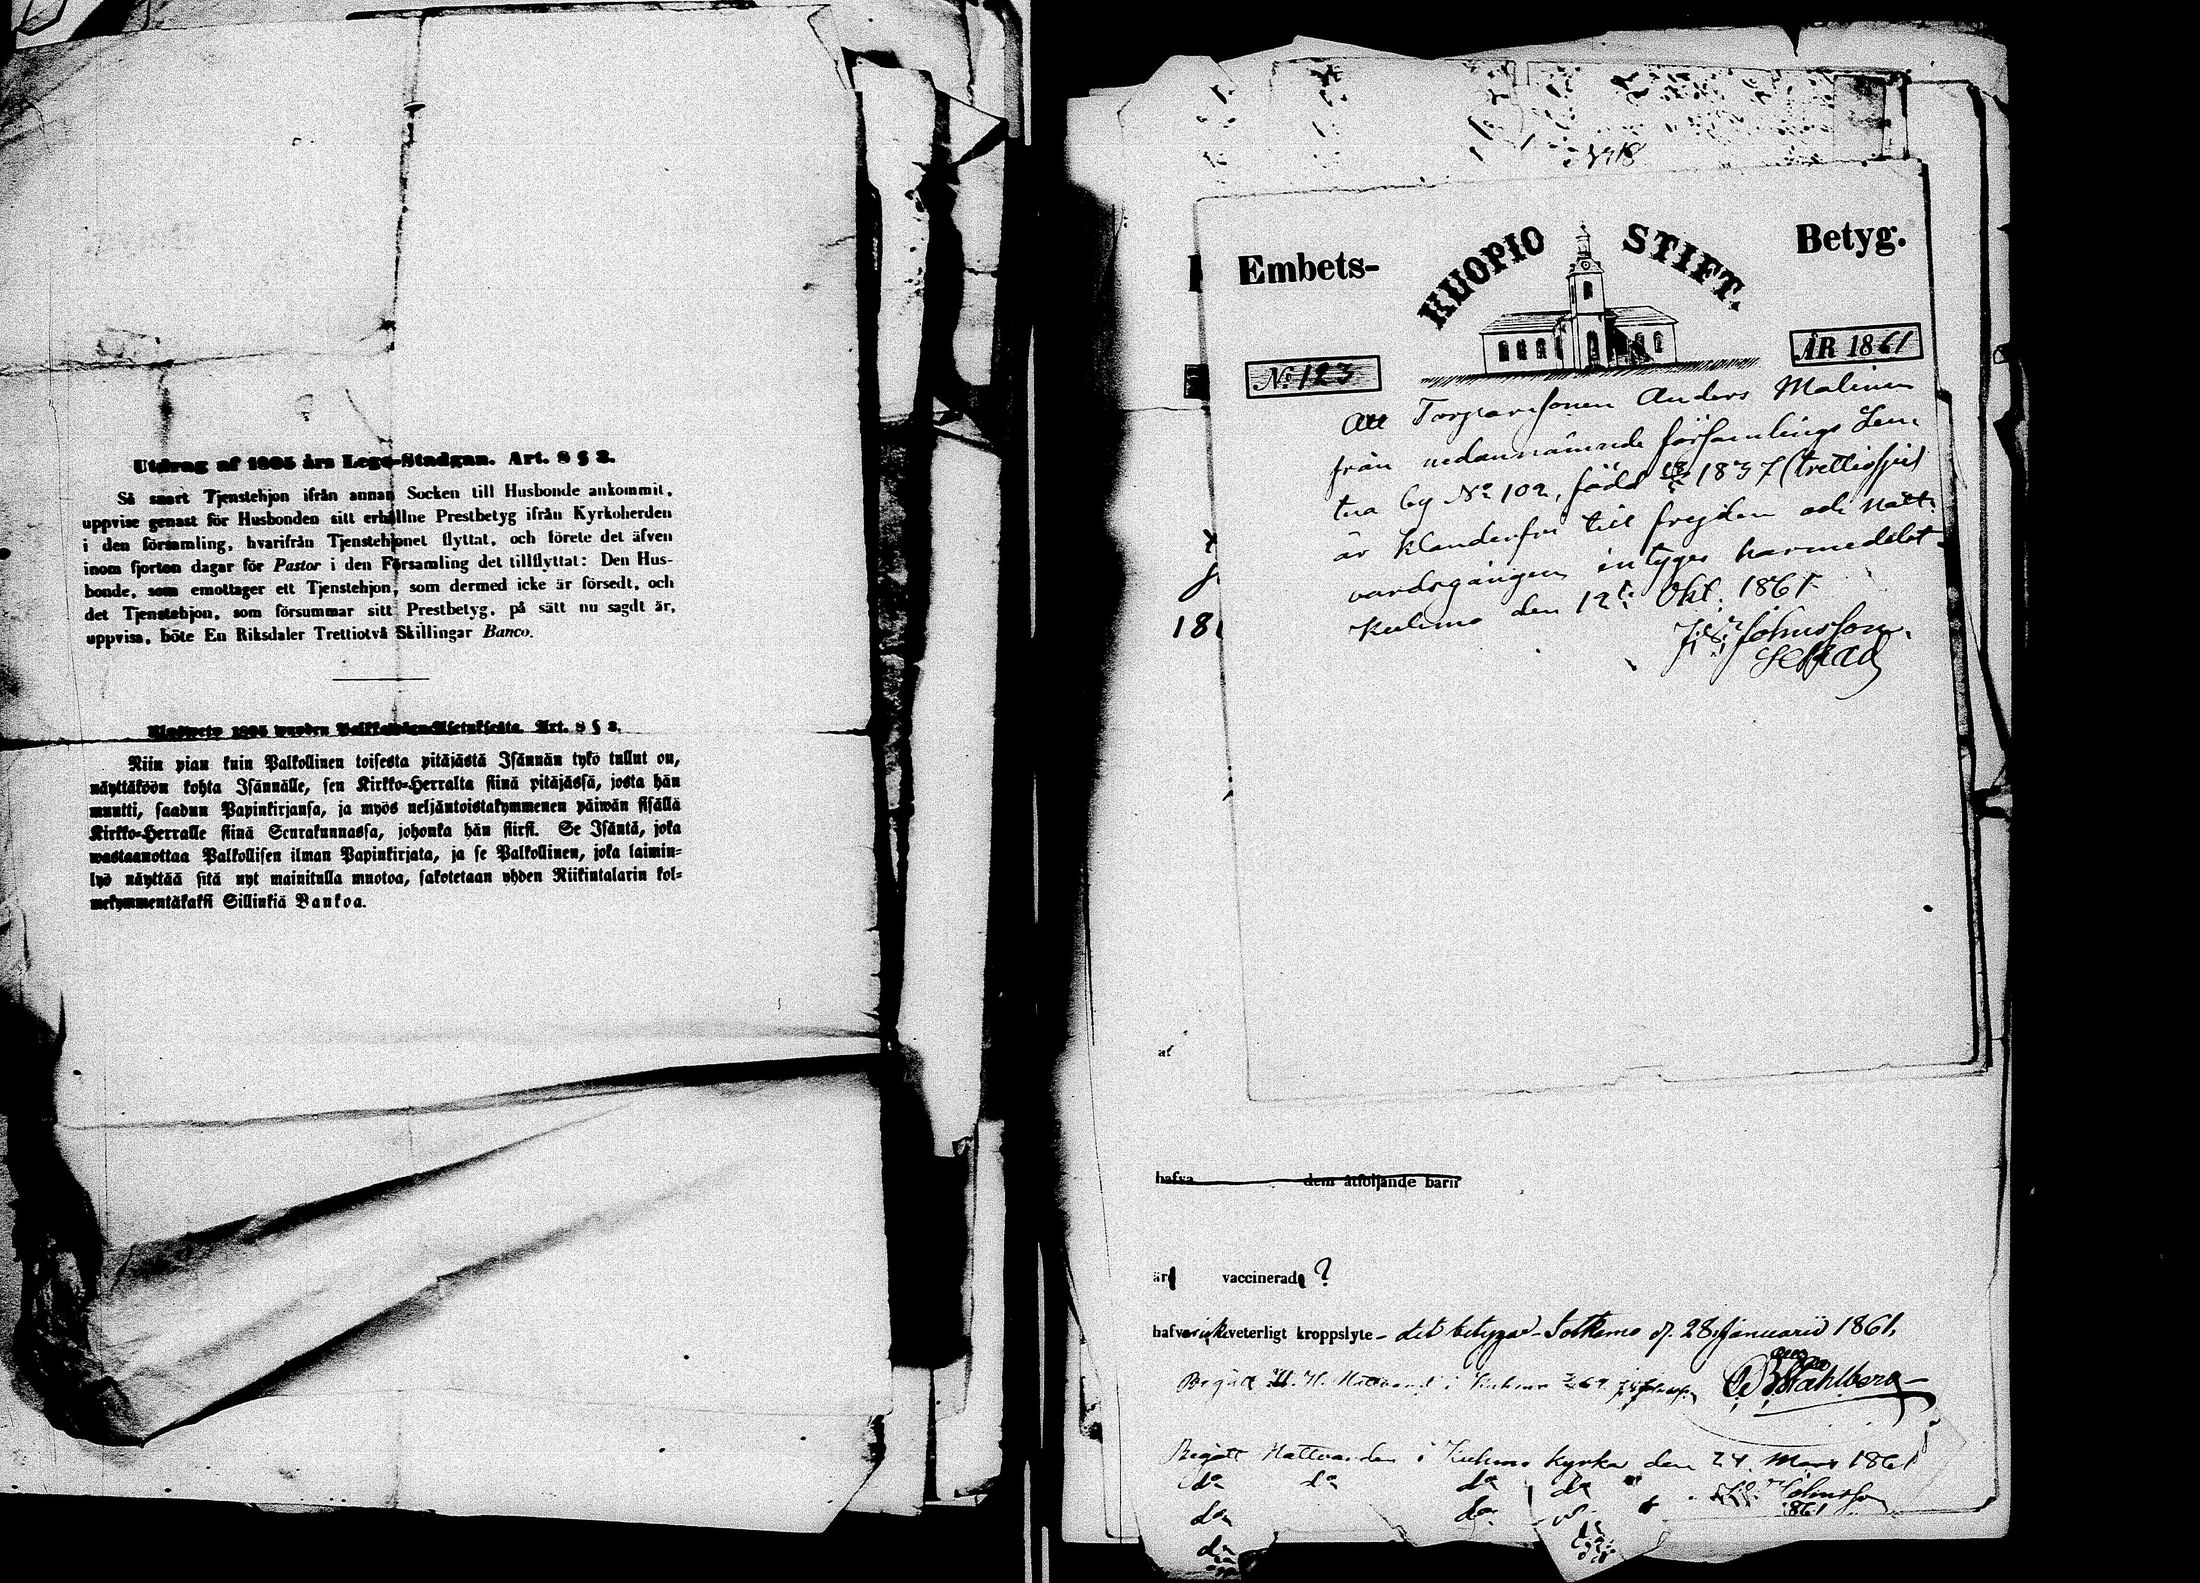 Utdrag af 1805 års Lego-Stadgan. Art. 8 § 2.
Så snart Tjenstehjon ifrån annan Socken till Husbonde ankommit,
uppvise genast för Husbonden sitt erhållne Prestbetyg ifrån Kyrkoherden
i den församling, hvarifrån Tjenstehjonet flyttat, och förete det äfven
inom fjorton dagar för Pastor i den Församling det tillflyttat: Den Hus-
bonde, som emottager ett Tjenstehjon, som dermed icke är försedt, och
det Tjenstehjon, som försummar sitt Prestbetyg, på sätt nu sagdt är,
uppvisa, böte En Riksdaler Trettiotvå Skillingar Banco.
1805 wuoden Art. 8 § 2.
Niin pian kuin Palkollinen toisesta pitäjästä Isännän tykö tullut on,
näyttäköön kohta Isännälle, sen Kirkko-Herralta siinä pitäjässä, josta hän
muutti, saadun Papinkirjansa, ja myös neljäntoistakymmenen päiwän sisällä
Kirkko-Herralle siinä Seurakunnassa, johonka hän siirsi. Se Isäntä, joka
wastaanottaa Palkollisen ilman Papinkirjata, ja se Palkollinen, joka laimin-
lyö näyttää sitä nyt mainitulla muotoa, sakotetaan yhden Riikintalarin kol-
mekymmentäkaksi Sillinkiä Bankoa.
Embets- KUOPIO STIFT. Betyg.
No 123 ÅR 1861
Att Torparesonen Anders Malinen
från nedannämnde församlings Len-
tua by No 102, född 1837 (trettiosju)
är klanderfri till frejden och natt-
vardsgången intyges härmedelst.
Kuhmo den 12te Okt. 1861.
Johnsson.
181
af
hafva dem åtföljande barn
är vaccinerad ?
hafva icke veterligt kroppslyte - det betygar Sotkamo d. 28 Januarii 1861.
Begått H. H. Nattvard i Kuhmo Stahlberg
Begått Nattvarden i Kuhmo kyrka den 24 Mars 1861
do do do do Johnsson
do do 1861
do